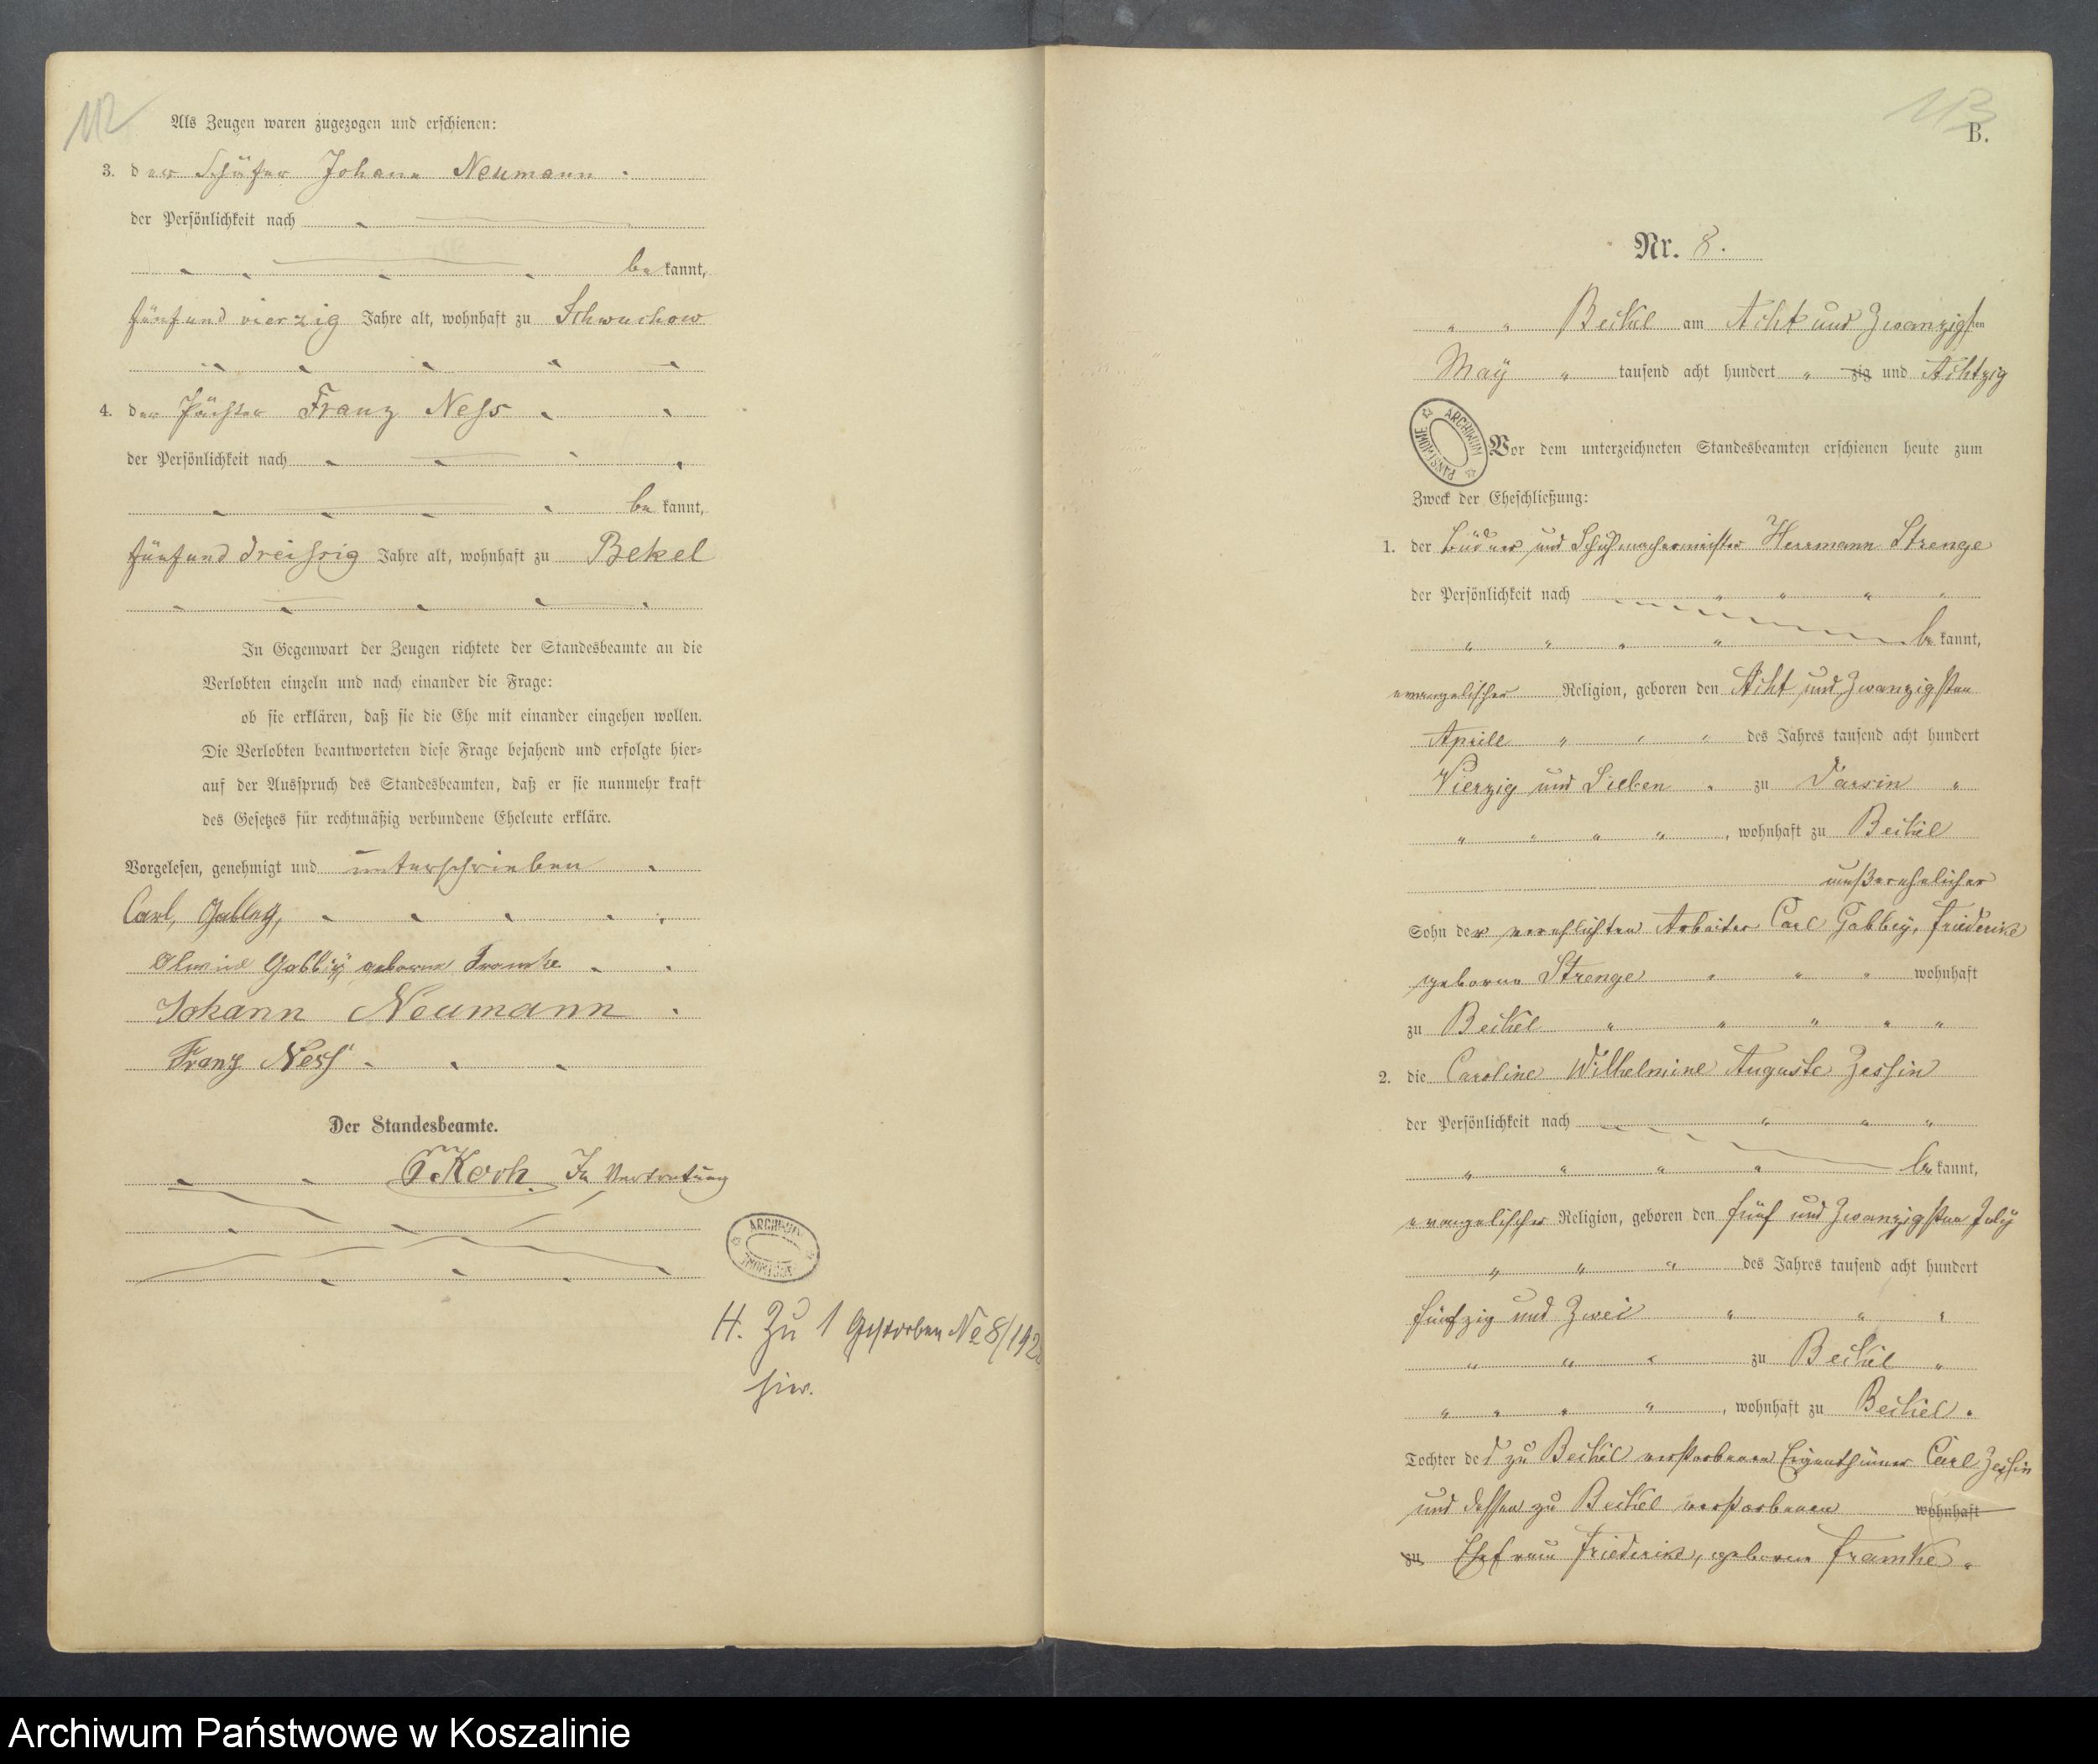 112
Als Zeugen waren zugezogen und erschienen:
3. der Schäfer Johann Neumann
der Persönlichkeit nach
be kannt,
fünfund vierzig Jahre alt, wohnhaft zu Schwuchow
4. der Pächter Franz Ness
der Persönlichkeit nach
be kannt,
fünfund dreissig Jahre alt, wohnhaft zu Bekel
In Gegenwart der Zeugen richtete der Standesbeamte an die
Verlobten einzeln und nach einander die Frage:
ob sie erklären, daß sie die Ehe mit einander eingehen wollen.
Die Verlobten beantworteten diese Frage bejahend und erfolgte hier-
auf der Ausspruch des Standesbeamten, daß er sie nunmehr kraft
des Gesetzes für rechtmäßig verbundene Eheleute erkläre.
Vorgelesen, genehmigt und unterschrieben
Carl, Gabbey,
Gabbey geborene Framke
Johann Neumann
Franz Ness
Der Standesbeamte.
Koch. In Vertretung
ARCHIWUM
H. Zu 1 Gestorben No 8/192
hier.
113
B.
Nr. 8.
Beckel am Acht und Zwanzigsten
May tausend acht hundert zig und Achtzig
ARCHIWUM PAŃSTWOWE
Vor dem unterzeichneten Standesbeamten erschienen heute zum
Zweck der Eheschließung:
1. der Büdner und Schuhmachermeister Herrmann Strenge
der Persönlichkeit nach
be kannt,
evangelischer Religion, geboren den Acht und Zwanzigsten
Aprill des Jahres tausend acht hundert
Vierzig und Sieben zu Darsin
, wohnhaft zu Beckel
außerehelicher
Sohn der verehlichten Arbeiter Carl Gabbey, Friederike
geborene Strenge wohnhaft
zu Beckel
2. die Caroline Wilhelmine Auguste Zessin
der Persönlichkeit nach
be kannt,
evangelischer Religion, geboren den fünf und Zwanzigsten July
des Jahres tausend acht hundert
fünfzig und Zwei
zu Beckel
, wohnhaft zu Beckel.
Tochter des zu Beckel verstorbenen Eigenthümer Carl Zessin
und dessen zu Beckel verstorbenen wohnhaft
zu Ehefrau Friederike, geborene Framke.
Archiwum Państwowe w Koszalinie